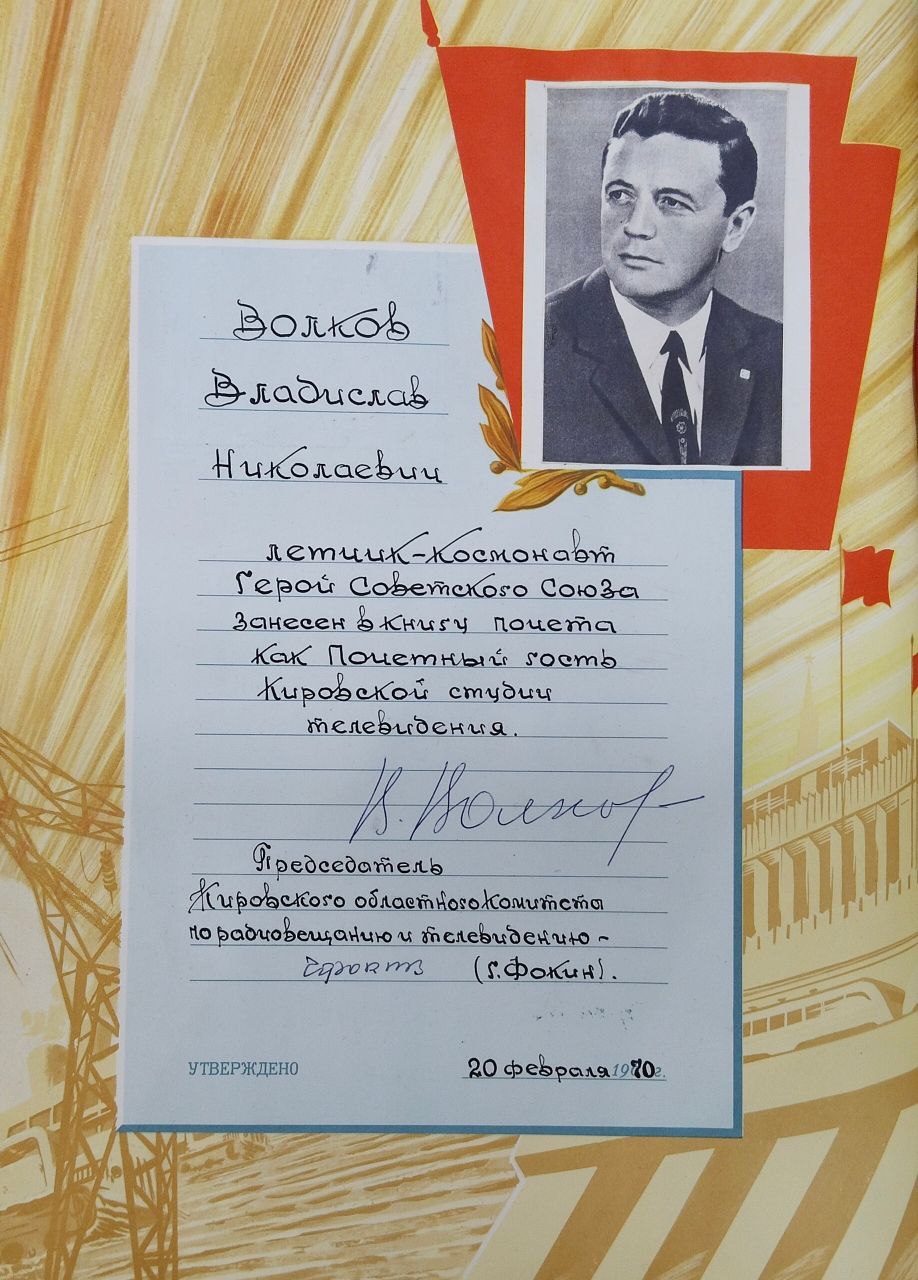 Волков
Владислав
Николаевич
летчик-космонавт
Герой Советского Союза
занесен в книгу почета
как Почетный гость
Кировской студии
телевидения.
В. Волков
Председатель
Кировского областного комитета
по радиовещанию и телевидению -
(Г. Фокин).
УТВЕРЖДЕНО 20 февраля 1970 г.